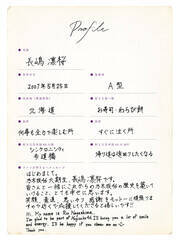 Profile
長嶋 凛桜
2007年5月25日
A型
北海道
お寿司・わらび餅
何事も全力で楽しむ所
すぐに泣く所
シンクロニシティ
歩道橋
帰り道は遠回りしたくなる
はじめまして。
乃木坂46 6期生、長嶋凛桜です。
皆さんと一緒にこれからの乃木坂46の歴史を築いて
いけることを幸せに思います。
笑顔、素直、思いやり、感謝をモットーに頑張りますので
Hi. My name is Rio Nagashima.
I'm proud to be part of Nogizaka46. I'll bring you a lot of smile
and energy. I'll be happy if you cheer me on